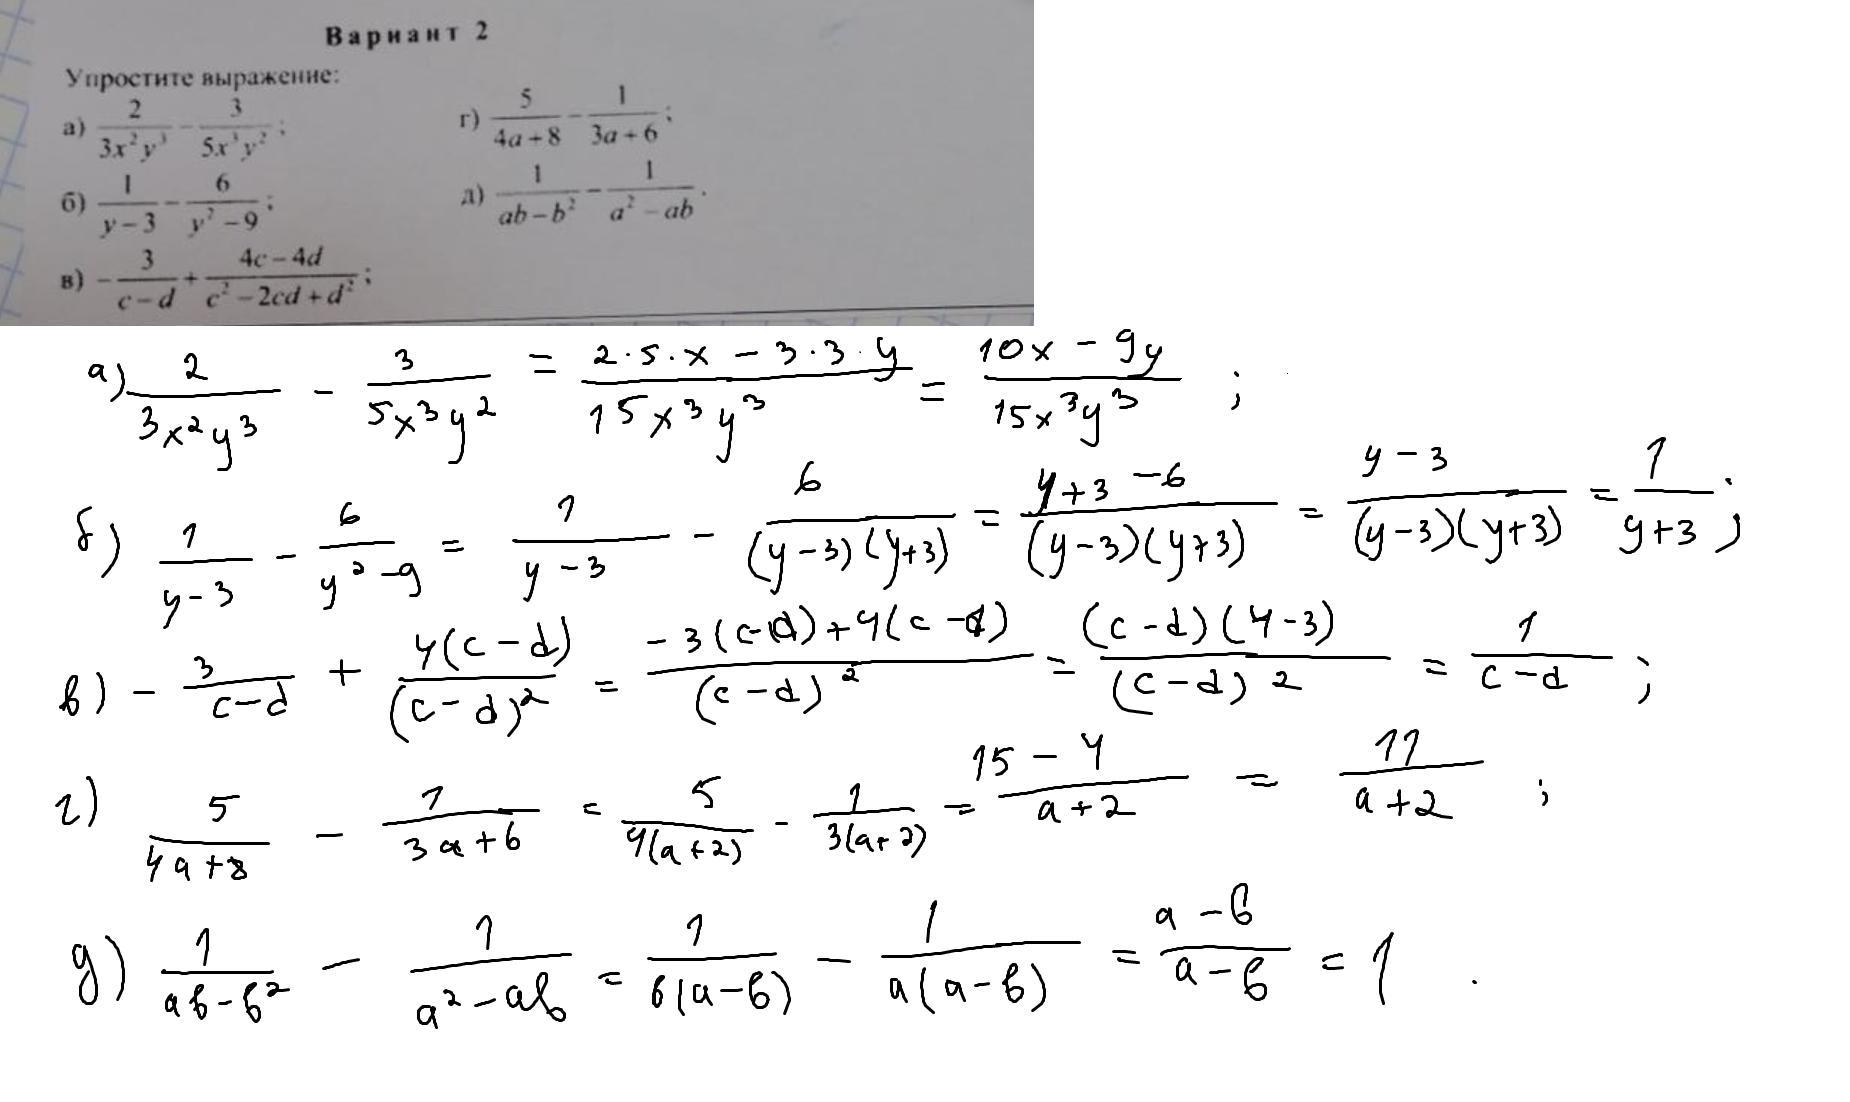 Вариант 2
Упростите выражение:
а) 2/(3x²y³) - 3/(5x³y²);
г) 5/(4a+8) - 1/(3a+6);
б) 1/(y-3) - 6/(y²-9);
д) 1/(ab-b²) - 1/(a²-ab).
в) -3/(c-d) + (4c-4d)/(c²-2cd+d²);
а) 2/(3x²y³) - 3/(5x³y²) = (2·5·x - 3·3·y)/(15x³y³) = (10x - 9y)/(15x³y³);
б) 1/(y-3) - 6/(y²-9) = 1/(y-3) - 6/((y-3)(y+3)) = (y+3-6)/((y-3)(y+3)) = (y-3)/((y-3)(y+3)) = 1/(y+3);
в) -3/(c-d) + 4(c-d)/(c-d)² = (-3(c-d)+4(c-d))/(c-d)² = (c-d)(4-3)/(c-d)² = 1/(c-d);
г) 5/(4a+8) - 1/(3a+6) = 5/(4(a+2)) - 1/(3(a+2)) = (15-4)/(a+2) = 11/(a+2);
д) 1/(ab-b²) - 1/(a²-ab) = 1/(b(a-b)) - 1/(a(a-b)) = (a-b)/(a-b) = 1.